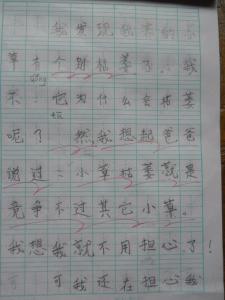 我发现我养的小
草有个别枯萎了。我
不 它为什么会枯萎
呢? 然我想起爸爸
说过:小草枯萎就是
竞争不过其它小草。
我想我就不用担心了!
可我还在担心我